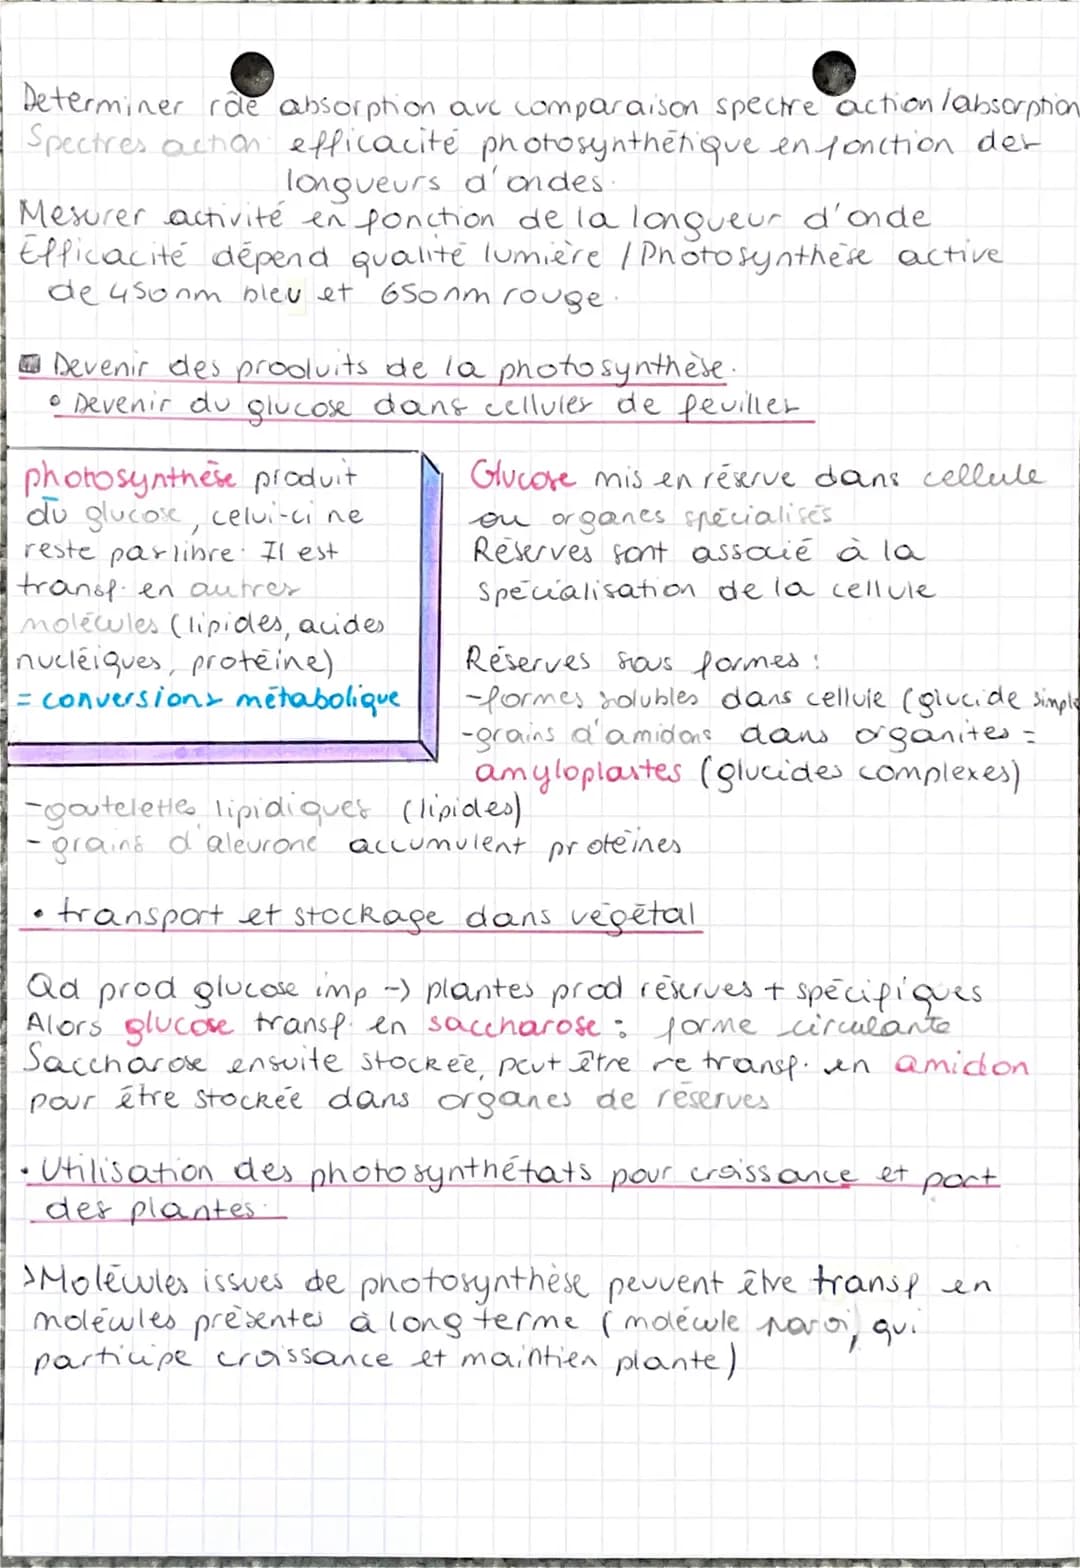 Determiner rôle absorption avc comparaison spectre action/absorption
Spectres action efficacité photosynthétique en fonction des
longueurs d'ondes.
Mesurer activité en fonction de la longueur d'onde
Efficacité dépend qualité lumière / Photosynthèse active
de 450nm bleu et 650nm rouge.
Devenir des produits de la photosynthèse.
• Devenir du glucose dans cellules de feuilles
photosynthèse produit
du glucose, celui-ci ne
reste pas libre. Il est
transf. en autres
molécules (lipides, acides
nucléiques, protéine)
= conversions métabolique
Glucose mis en réserve dans cellule
ou organes spécialisés
Réserves sont associé à la
spécialisation de la cellule
Réserves sous formes :
-formes solubles dans cellule (glucide simple
-grains d'amidons dans organites =
amyloplastes (glucides complexes)
-goutelettes lipidiques (lipides)
- grains d'aleurone accumulent protéines
• transport et stockage dans végétal
Qd prod glucose imp -> plantes prod réserves + spécifiques
Alors glucose transf. en saccharose : forme circulante
Saccharose ensuite stockée, peut être re transf. en amidon
pour être stockée dans organes de réserves
• Utilisation des photosynthétats pour croissance et port
des plantes.
>Molécules issues de photosynthèse peuvent être transf en
molécules présentes à long terme (molécule paroi, qui
participe croissance et maintien plante)